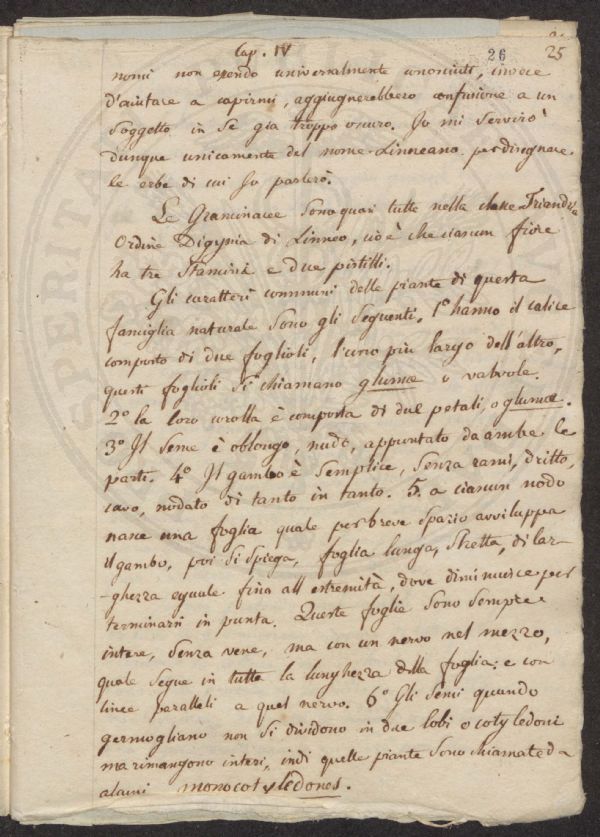 Cap. IV
26 25
nomi non essendo universalmente conosciuti, invece
d'aiutare a capirmi, aggiugnerebbero confusione a un
soggetto in se gia troppo oscuro. Io mi servirò
dunque unicamente del nome Linneano per disegnare
le erbe di cui so parlerò.
Le Graminacee sono quasi tutte nella classe Triandria
Ordine Digynia di Linneo, cioè che ciascun fiore
ha tre stamini e due pistilli.
Gli caratteri communi delle piante di questa
famiglia naturale sono gli seguenti. 1º hanno il calice
composto di due foglioli, l'uno più largo dell'altro,
questi foglioli si chiamano glumæ o valvole.
2º la loro corolla è composta di due petali, o glumæ.
3º Il seme è oblongo, nudo, appuntato da ambe le
parti. 4º Il gambo è semplice, senza rami, dritto,
cavo, nodato di tanto in tanto. 5. a ciascun nodo
nasce una foglia quale per breve spazio avviluppa
il gambo, poi si spiega, foglia lunga, stretta, di lar-
-ghezza eguale fino all'estremità, dove diminuisce per
terminarsi in punta. Queste foglie sono sempre
intere, senza vene, ma con un nervo nel mezzo,
quale segue in tutta la lunghezza della foglia: e con
linee paralleli a quel nervo. 6º Gli semi quando
germogliano non si dividono in due lobi o cotyledoni
ma rimangono interi, indi quelle piante sono chiamate da
alcuni monocotyledones.